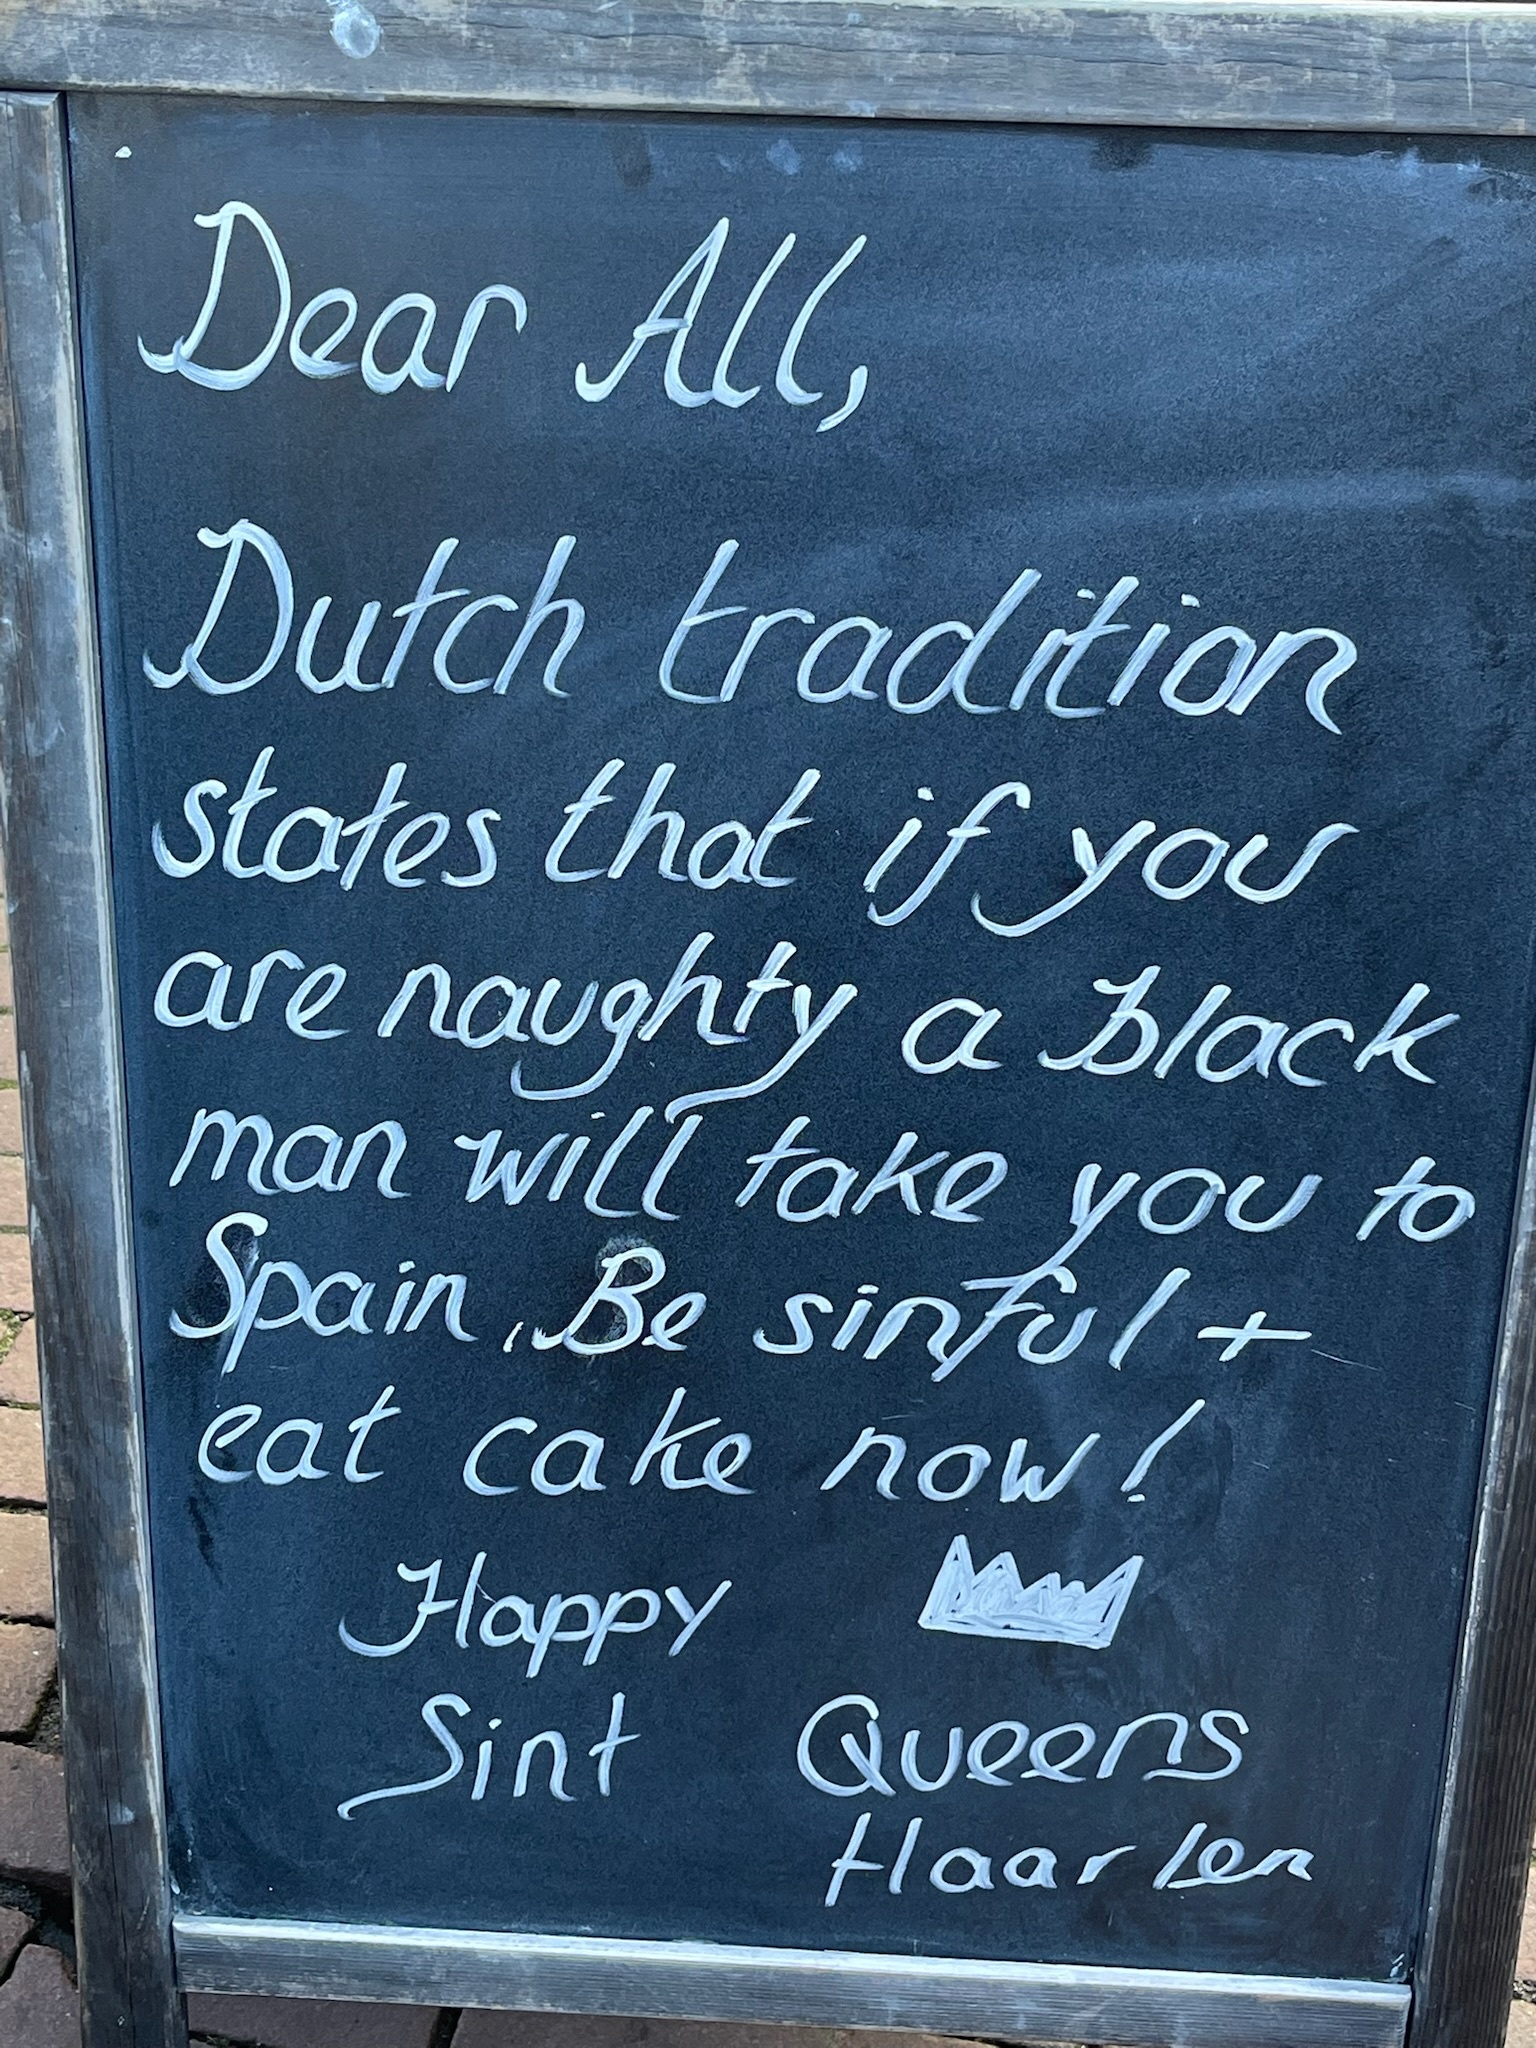 Dear All,
Dutch tradition
states that if you
are naughty a black
man will take you to
Spain. Be sinful +
eat cake now!
Happy
Sint
Queens
Haarlem